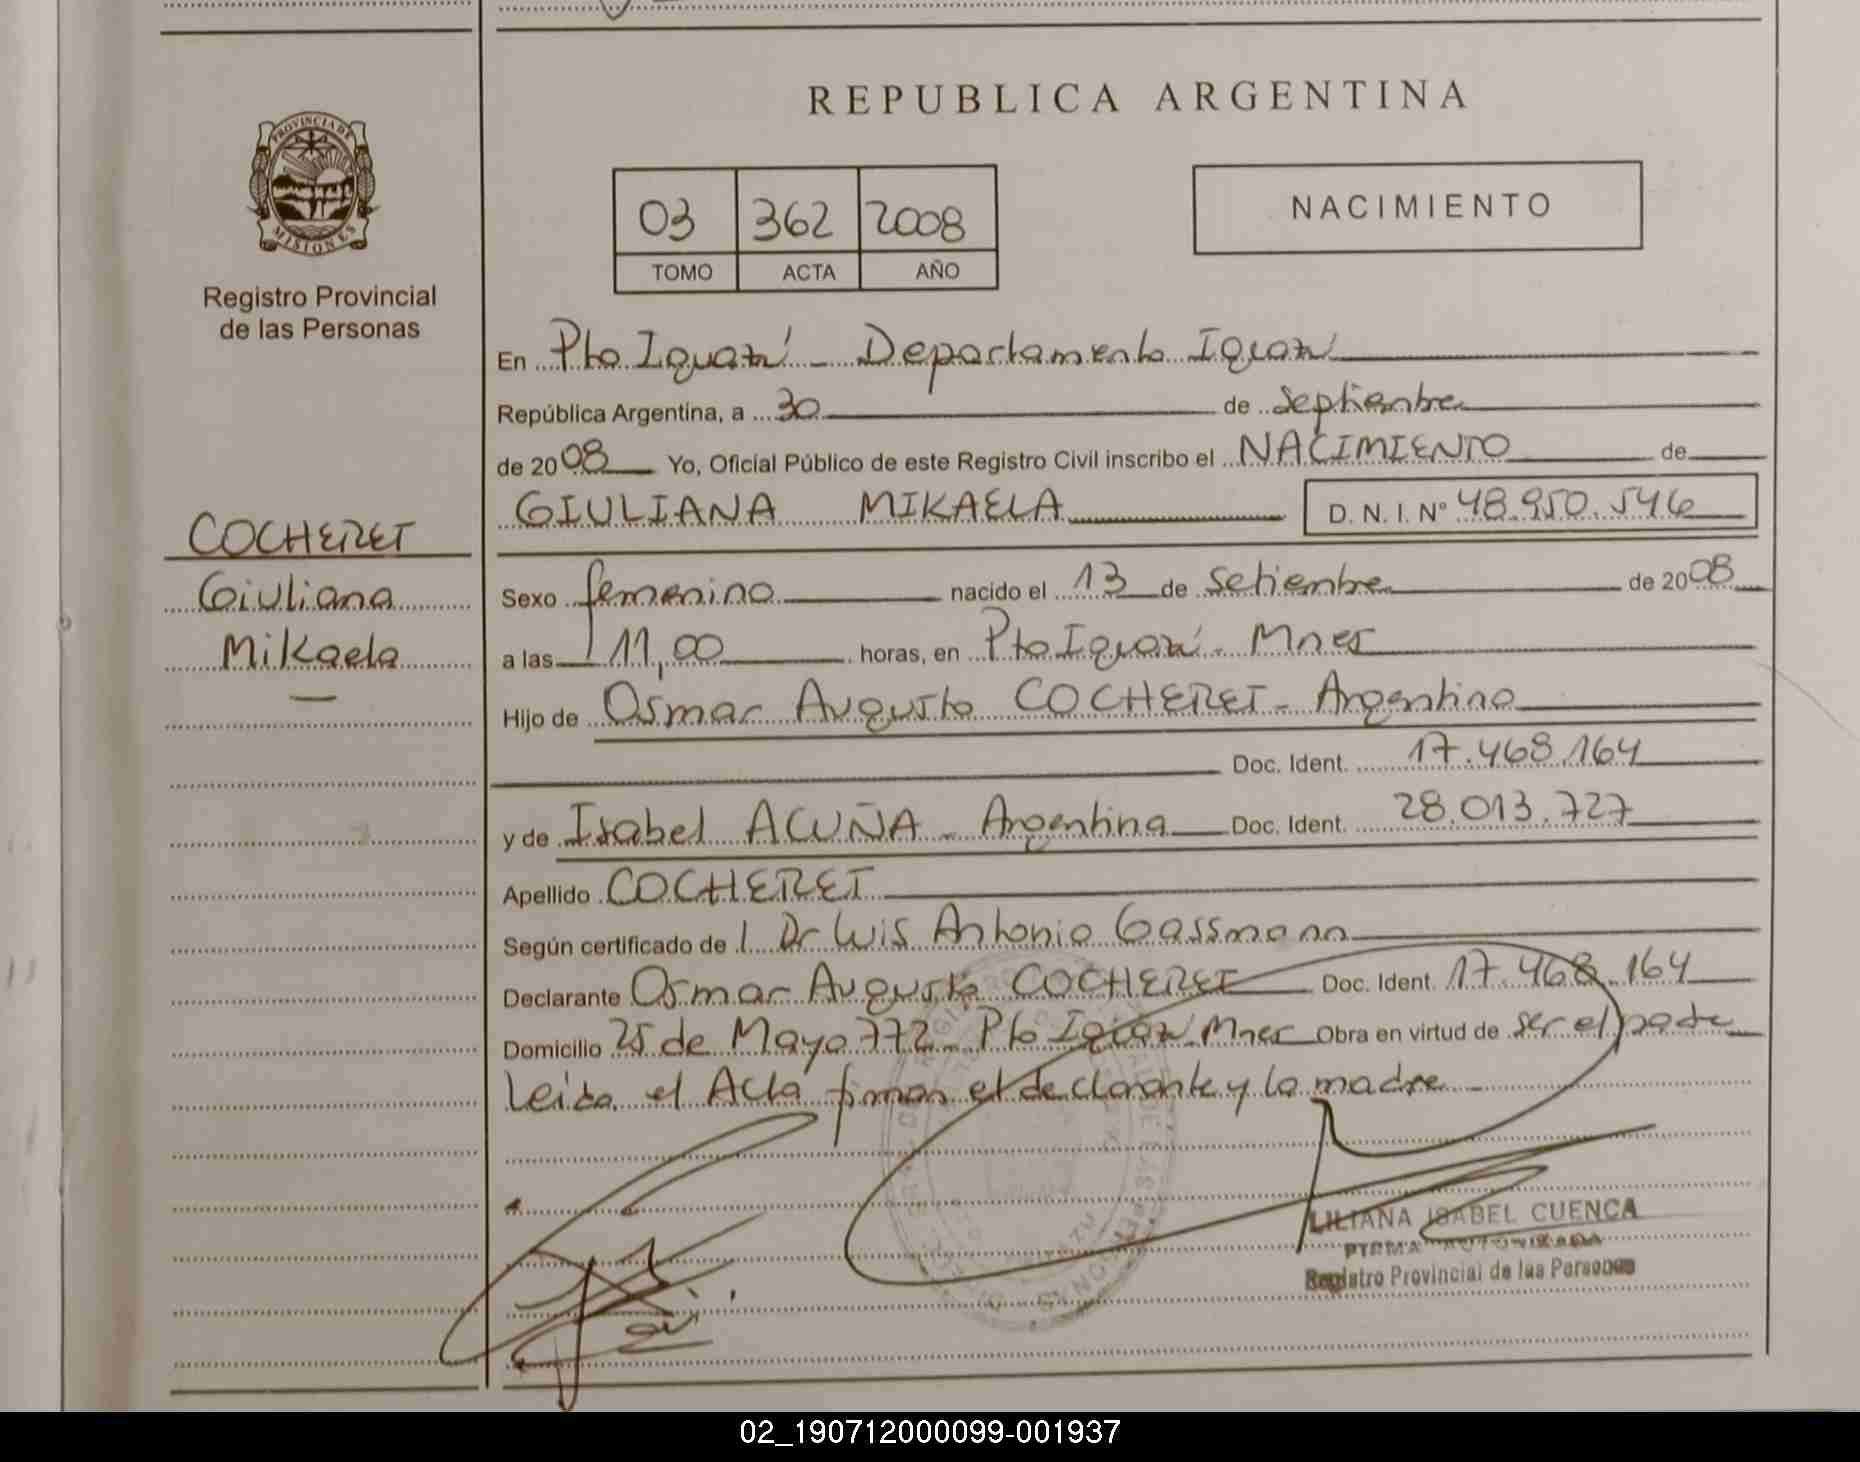 REPUBLICA ARGENTINA
PROVINCIA DE
MISIONES
Registro Provincial
de las Personas
03 362 2008
TOMO ACTA AÑO
NACIMIENTO
En Pto Iguazú - Departamento Iguazú
República Argentina, a 30 de Septiembre
de 2008 Yo, Oficial Público de este Registro Civil inscribo el NACIMIENTO de
GIULIANA MIKAELA D. N. I. N° 48.950.546
COCHERET
Giuliana
Mikaela
Sexo femenino nacido el 13 de Setiembre de 2008
a las 11,00 horas, en Pto Iguazú - Mnes
Hijo de Osmar Augusto COCHERET - Argentino
Doc. Ident. 17.468.164
y de Isabel ACUÑA - Argentina Doc. Ident. 28.013.727
Apellido COCHERET
Según certificado de Dr Luis Antonio Gassmann
Declarante Osmar Augusto COCHERET Doc. Ident. 17.468.164
Domicilio 25 de Mayo 772 - Pto Iguazú Mnes Obra en virtud de ser el padre
Leida el Acta firman el declarante y la madre
LILIANA ISABEL CUENCA
FIRMA AUTORIZADA
Registro Provincial de las Personas
02_190712000099-001937